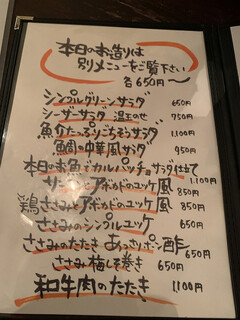 本日のお造りは
別メニューをご覧下さい
各650円~
シンプルグリーンサラダ 650円
シーザーサラダ 温玉のせ 750円
魚介たっぷりごちそうサラダ 1,100円
豆腐の中華風サラダ 950円
本日のお魚でカルパッチョサラダ仕立て 1,100円
サーモンとアボカドのユッケ風 850円
鶏ささみとアボカドのユッケ風 850円
ささみのシンプルユッケ 650円
ささみのたたき あっさりポン酢 650円
ささみ梅しそ巻き 650円
和牛肉のたたき 1,100円